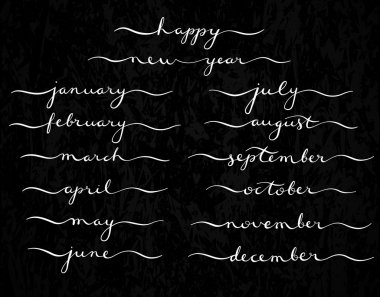 happy
new year
january
february
march
april
may
june
july
august
september
october
november
december